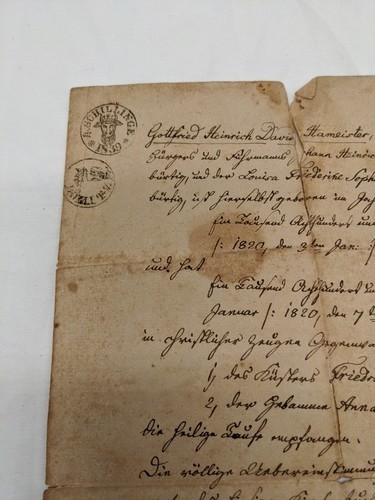 8 SCHILLINGE
1849
Gottfried Heinrich David Hameister,
Bürgers und Fuhrmanns Johann Heinrich
bürtig, und der Louisa Friederike Soph
bürtig, ist hierselbst geboren im Jah
Ein Tausend Achthundert und
/: 1820, den 3ten Jan: /
und hat
Ein Tausend Achthundert und
Januar /: 1820, den 7
in christlicher Zeugen Gegenwa
1, des Küsters Friedr
2, der Hebamme Anna
die heilige Taufe empfangen.
Die völlige Uebereinstimmu